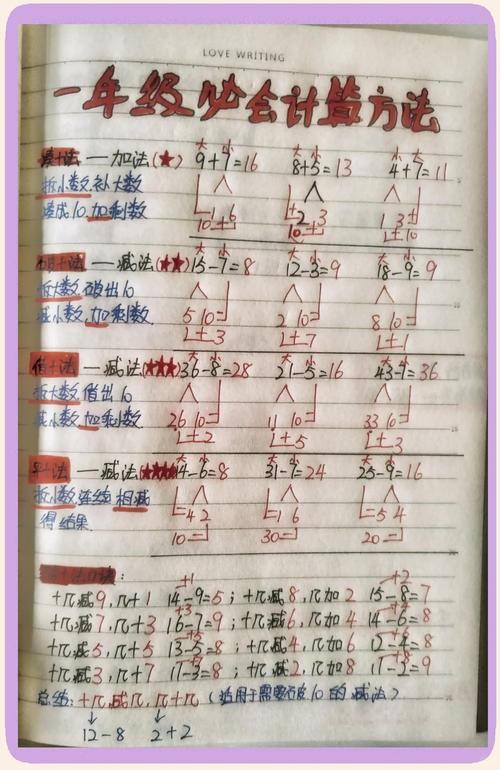 LOVE WRITING
一年级必会计算方法
凑十法 — 加法(★) 9+7=16 8+5=13 4+7=11
大 小 大 小 小 大
拆小数,补大数
凑成10,加剩数
1 6 2 3 1 3
10 10 10
破十法 — 减法(★★) 15-7=8 12-3=9 18-9=9
大 小 大 小 大 小
拆大数,破出10
减小数,加剩数
5 10 2 10 8 10
+ 3 + 7 + 1
借十法 — 减法(★★★) 36-8=28 21-5=16 43-7=36
大 小 大 小 大 小
拆大数,借出10
减小数,加剩数
26 10 11 10 33 10
+ 2 + 5 + 3
平十法 — 减法(★★★★) 14-6=8 31-7=24 25-9=16
大 小 大 小 大 小
拆小数,连续相减
得结果
4 2 1 6 5 4
10 30 20
+1 +2
十几减9,几+1 14-9=5; 十几减8,几加2 15-8=7
+3 +4
十几减7,几+3 16-7=9; 十几减6,几加4 14-6=8
+5
十几减5,几+5 13-5=8; 十几减4,几加6 12-4=8
十几减3,几+7 11-3=8; 十几减2,几加8 11-2=9
总结:十几减几,几+几(适用于需要破10的减法)
12-8 2+2